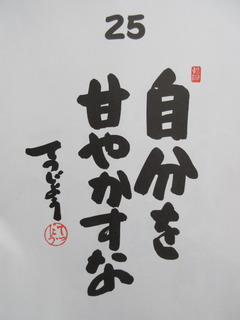 25
自分を
甘やかすな
てつじょう